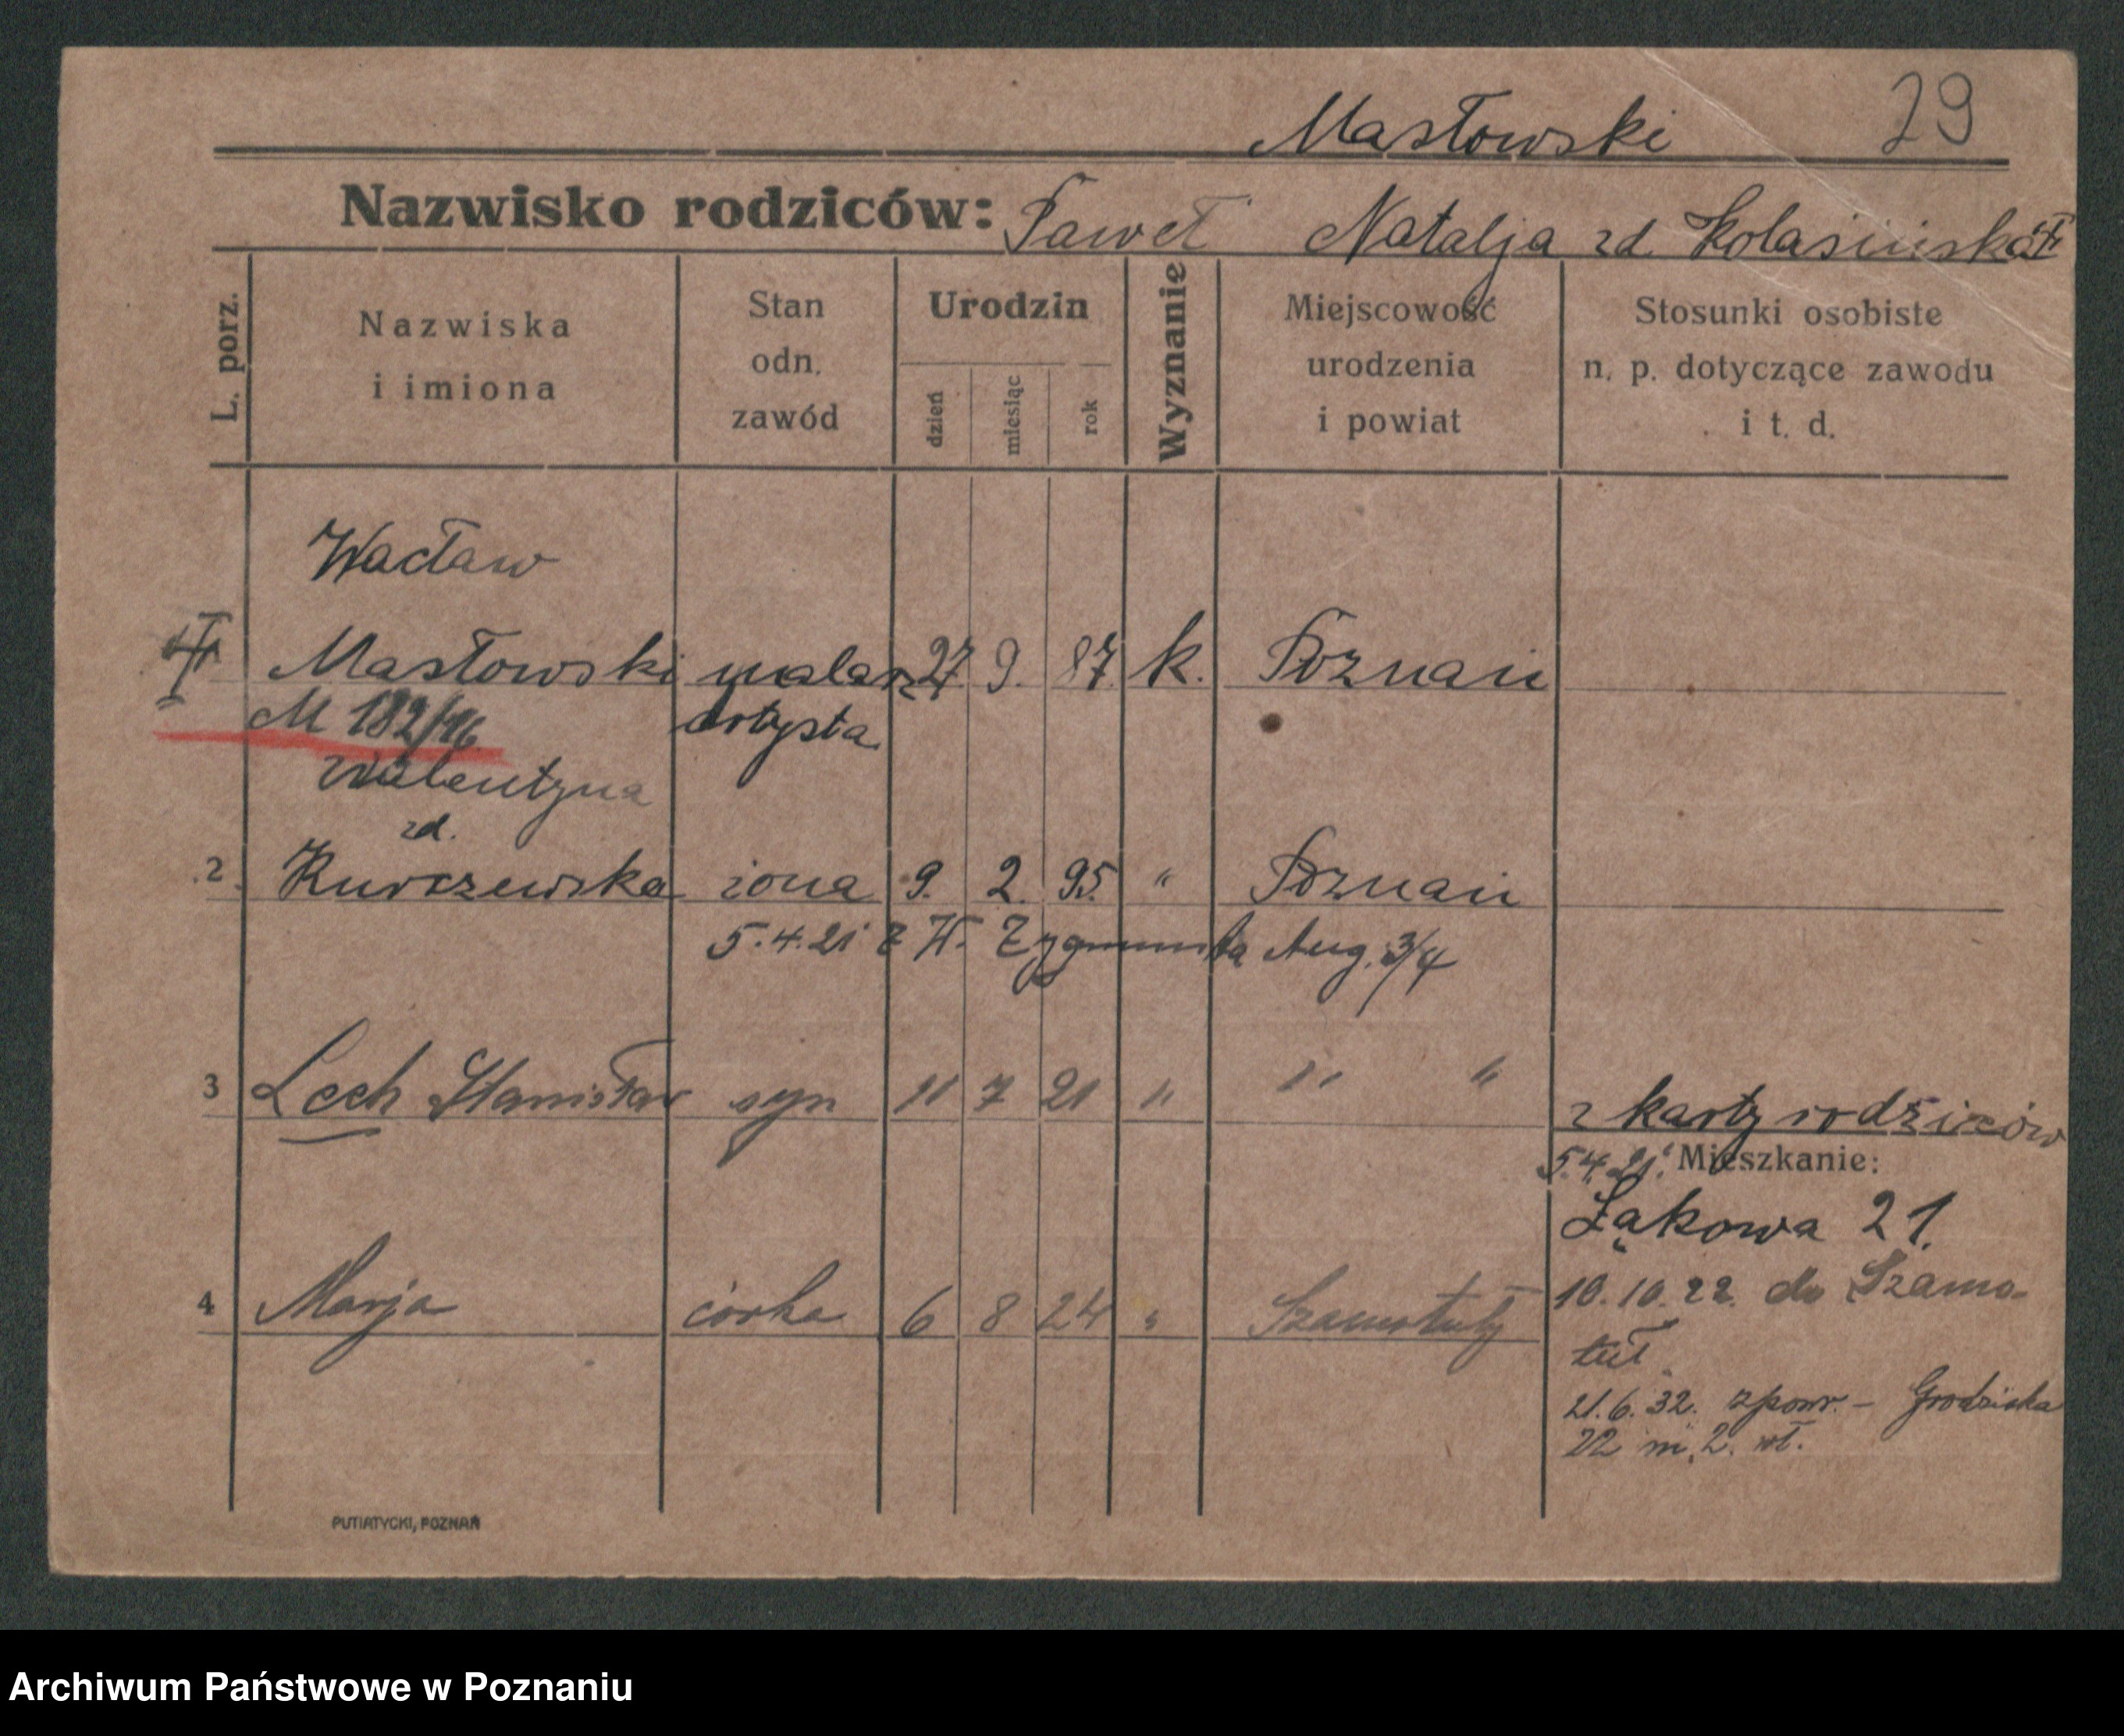 29
Masłowski
Nazwisko rodziców: Paweł Natalja zd. Kolasińska
L. porz.
Nazwiska
i imiona
Stan
odn.
zawód
Urodzin
dzień
miesiąc
rok
Wyznanie
Miejscowość
urodzenia
i powiat
Stosunki osobiste
n. p. dotyczące zawodu
i t. d.
Wacław
Masłowski malarz 27 9. 87. k. Poznań
M 182/16 artysta
Walentyna
zd.
2 Kurczewska żona 9. 2. 95. " Poznań
5.4.21 z W. Zygmunta Aug. 3/4
3 Lech Stanisław syn 11 7 21 " " "
z karty rodziców
5.4.21. Mieszkanie:
Łąkowa 21.
4 Marja córka 6 8 24 " Szamotuły
10.10.22. do Szamo-
tuł
21.6.32. zpowr. - Grodziska
22 m. 2. wł.
PUTIATYCKI, POZNAŃ
Archiwum Państwowe w Poznaniu